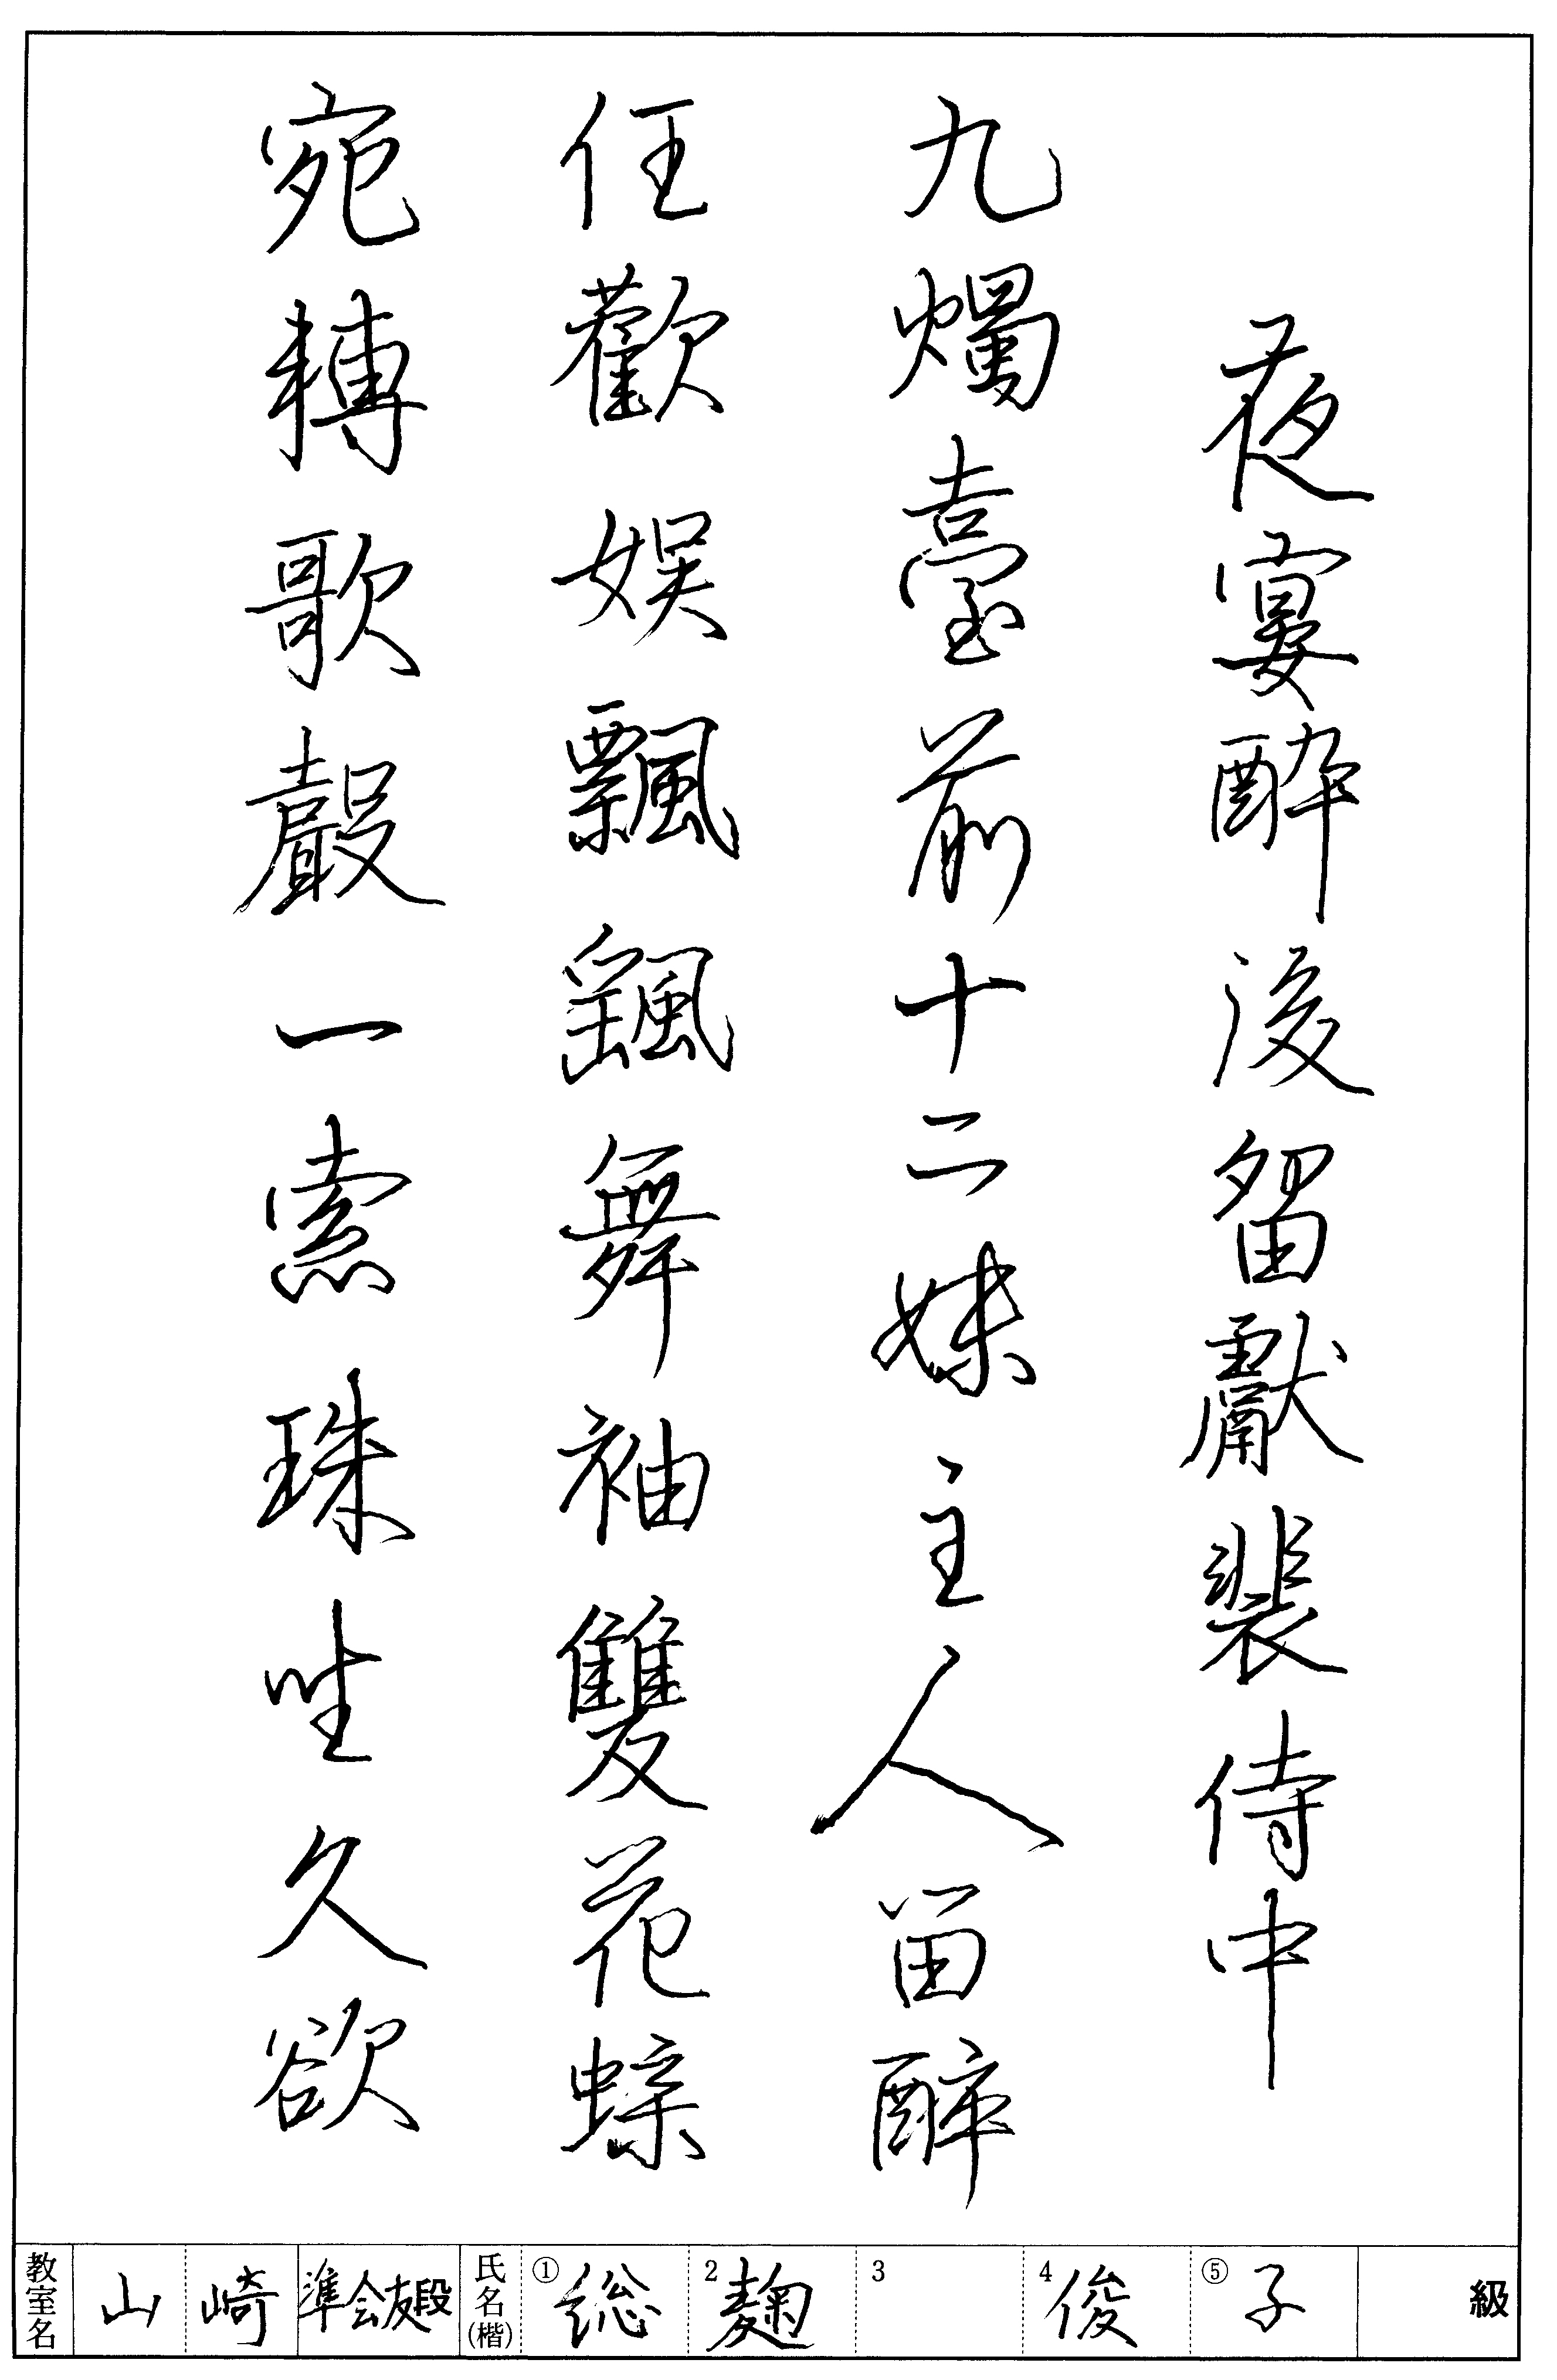 夜宴醉後留獻裴侍中
九燭臺前十二姝主人留醉
任歡娯飄颻舞袖雙花蝶
宛轉歌聲一索珠坐久欲
教室名 山崎 準会友段 氏名(楷) ①総 2麹 3 4俊 ⑤子 級